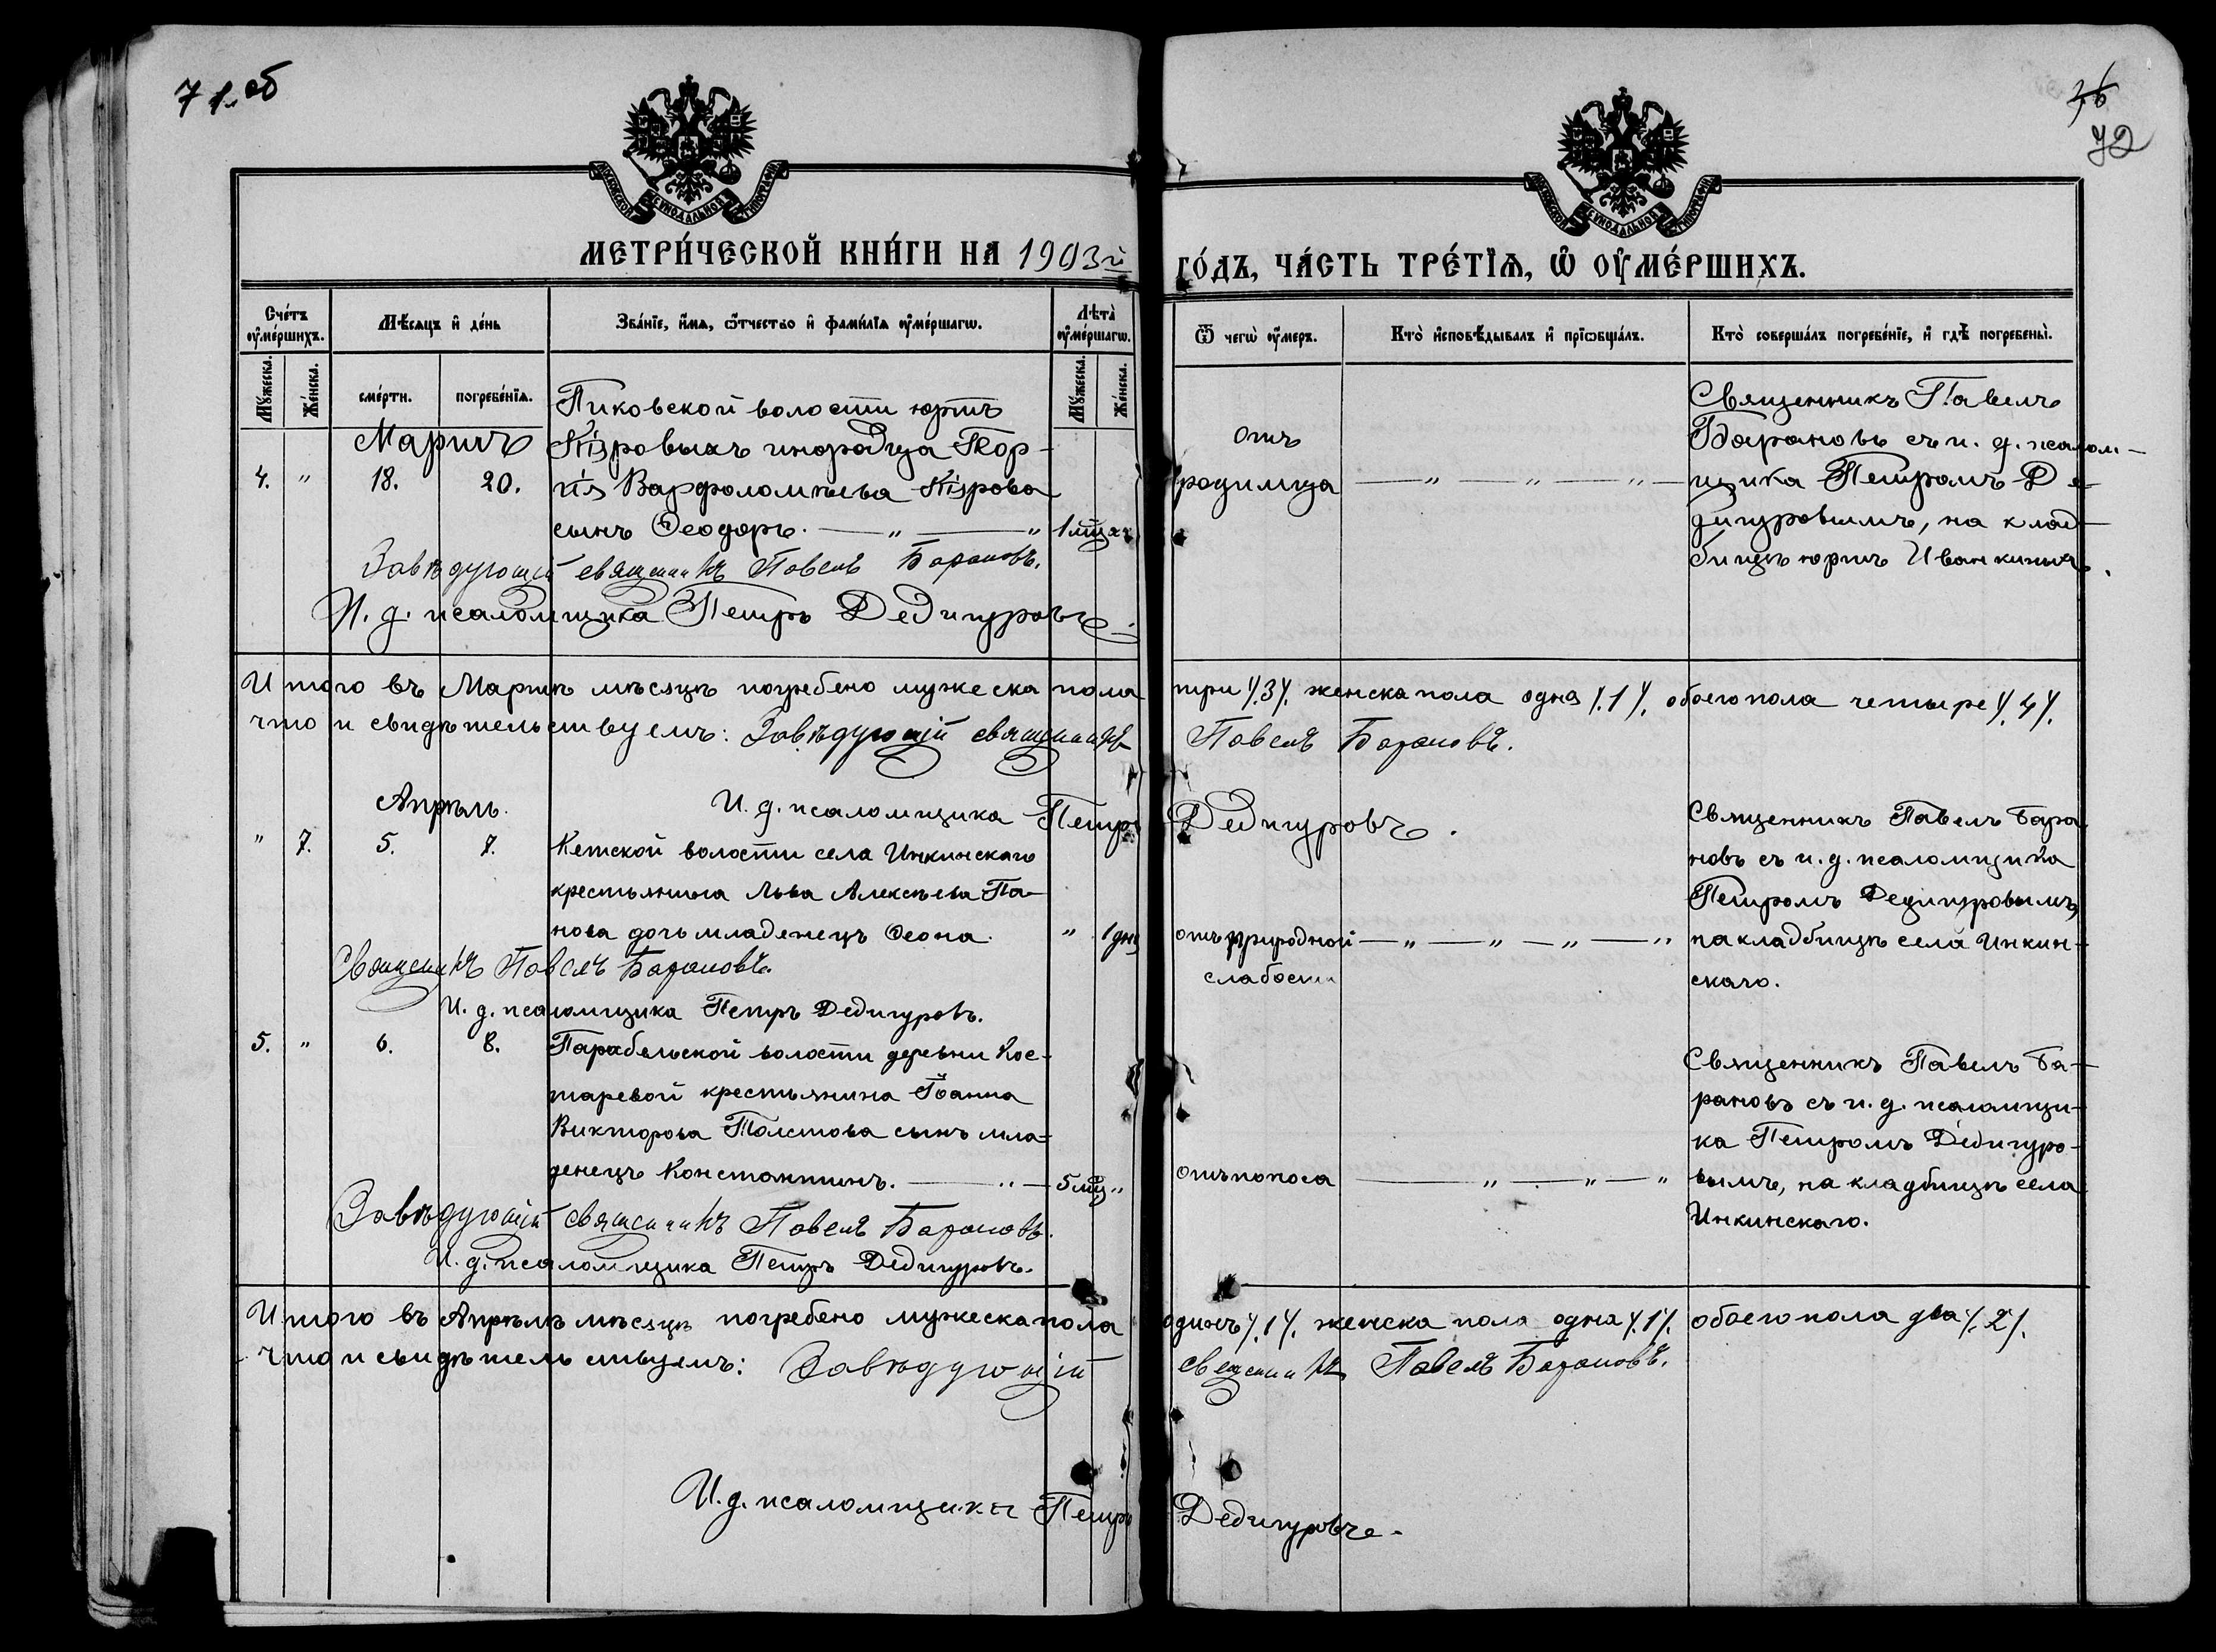 71 об
76
72
МОСКОВСКОЙ СѴНОДАЛЬНОЙ ТИПОГРАФІИ
МОСКОВСКОЙ СѴНОДАЛЬНОЙ ТИПОГРАФІИ
МЕТРИ́ЧЕСКОЙ КНИ́ГИ НА 1903й ГО́ДЪ, ЧА́СТЬ ТРЕ́ТІѦ, Ѡ ОУМЕ́РШИХЪ.
Сче́тъ оуме́ршихъ.
Мѣсяцъ и де́нь
Зва́нїе, и́мя, ѻ́тчество и фами́лїя оуме́ршагѡ.
Лѣта̀ оуме́ршагѡ.
Ѿ чегѡ̀ оу́меръ.
Кто̀ исповѣ́дывалъ и прїѡбща́лъ.
Кто̀ соверша́лъ погребе́нїе, и гдѣ̀ погребены̀.
Му́жеска.
Же́нска.
сме́рти.
погребе́нїя.
Му́жеска.
Же́нска.
Мартъ
4. " 18. 20.
Пиковской волости юртъ
Кіяровыхъ инородца
Варфоломѣева Кіярова
сынъ Ѳеодоръ. — " — "
1 мца
отъ
родимца
— " — " — " —
Священникъ Павелъ
Барановъ съ и. д. псалом-
щика Петромъ Де-
дигуровымъ, на клад-
бищѣ юртъ Иванкиныхъ.
Завѣдующій священникъ Павелъ Барановъ.
И. д. псаломщика Петръ Дедигуровъ.
Итого въ Мартѣ мѣсяцѣ погребено мужеска пола три /.3/. женска пола одна /.1/. обоего пола четыре /.4/.
что и свидѣтельствуемъ: Завѣдующій священникъ Павелъ Барановъ.
И. д. псаломщика Петръ Дедигуровъ.
Апрѣль.
" 7. 5. 7.
Кетской волости села Инкинскаго
крестьянина Льва Алексѣева Па-
нова дочь младенецъ Ѳеона.
" 1 дня
отъ природной
слабости
— " — " — " — "
Священникъ Павелъ Бара
новъ съ и. д. псаломщика
Петромъ Дедигуровымъ,
на кладбищѣ села Инкин-
скаго.
Священникъ Павелъ Барановъ.
И. д. псаломщика Петръ Дедигуровъ.
5. " 6. 8.
Парабельской волости деревни Кос-
таревой крестьянина Іоанна
Викторова Толстова сынъ мла-
денецъ Константинъ. — " —
5 мц "
отъ поноса
— " — " — "
Священникъ Павелъ Ба-
рановъ съ и. д. псаломщи-
ка Петромъ Дедигуро-
вымъ, на кладбищѣ села
Инкинскаго.
Завѣдующій священникъ Павелъ Барановъ.
И. д. псаломщика Петръ Дедигуровъ.
Итого въ Апрѣлѣ мѣсяцѣ погребено мужеска пола одинъ /.1/. женска пола одна /.1/. обоего пола два /.2/.
Что и свидѣтельствуемъ: Завѣдующій священникъ Павелъ Барановъ.
И. д. псаломщика Петръ Дедигуровъ.